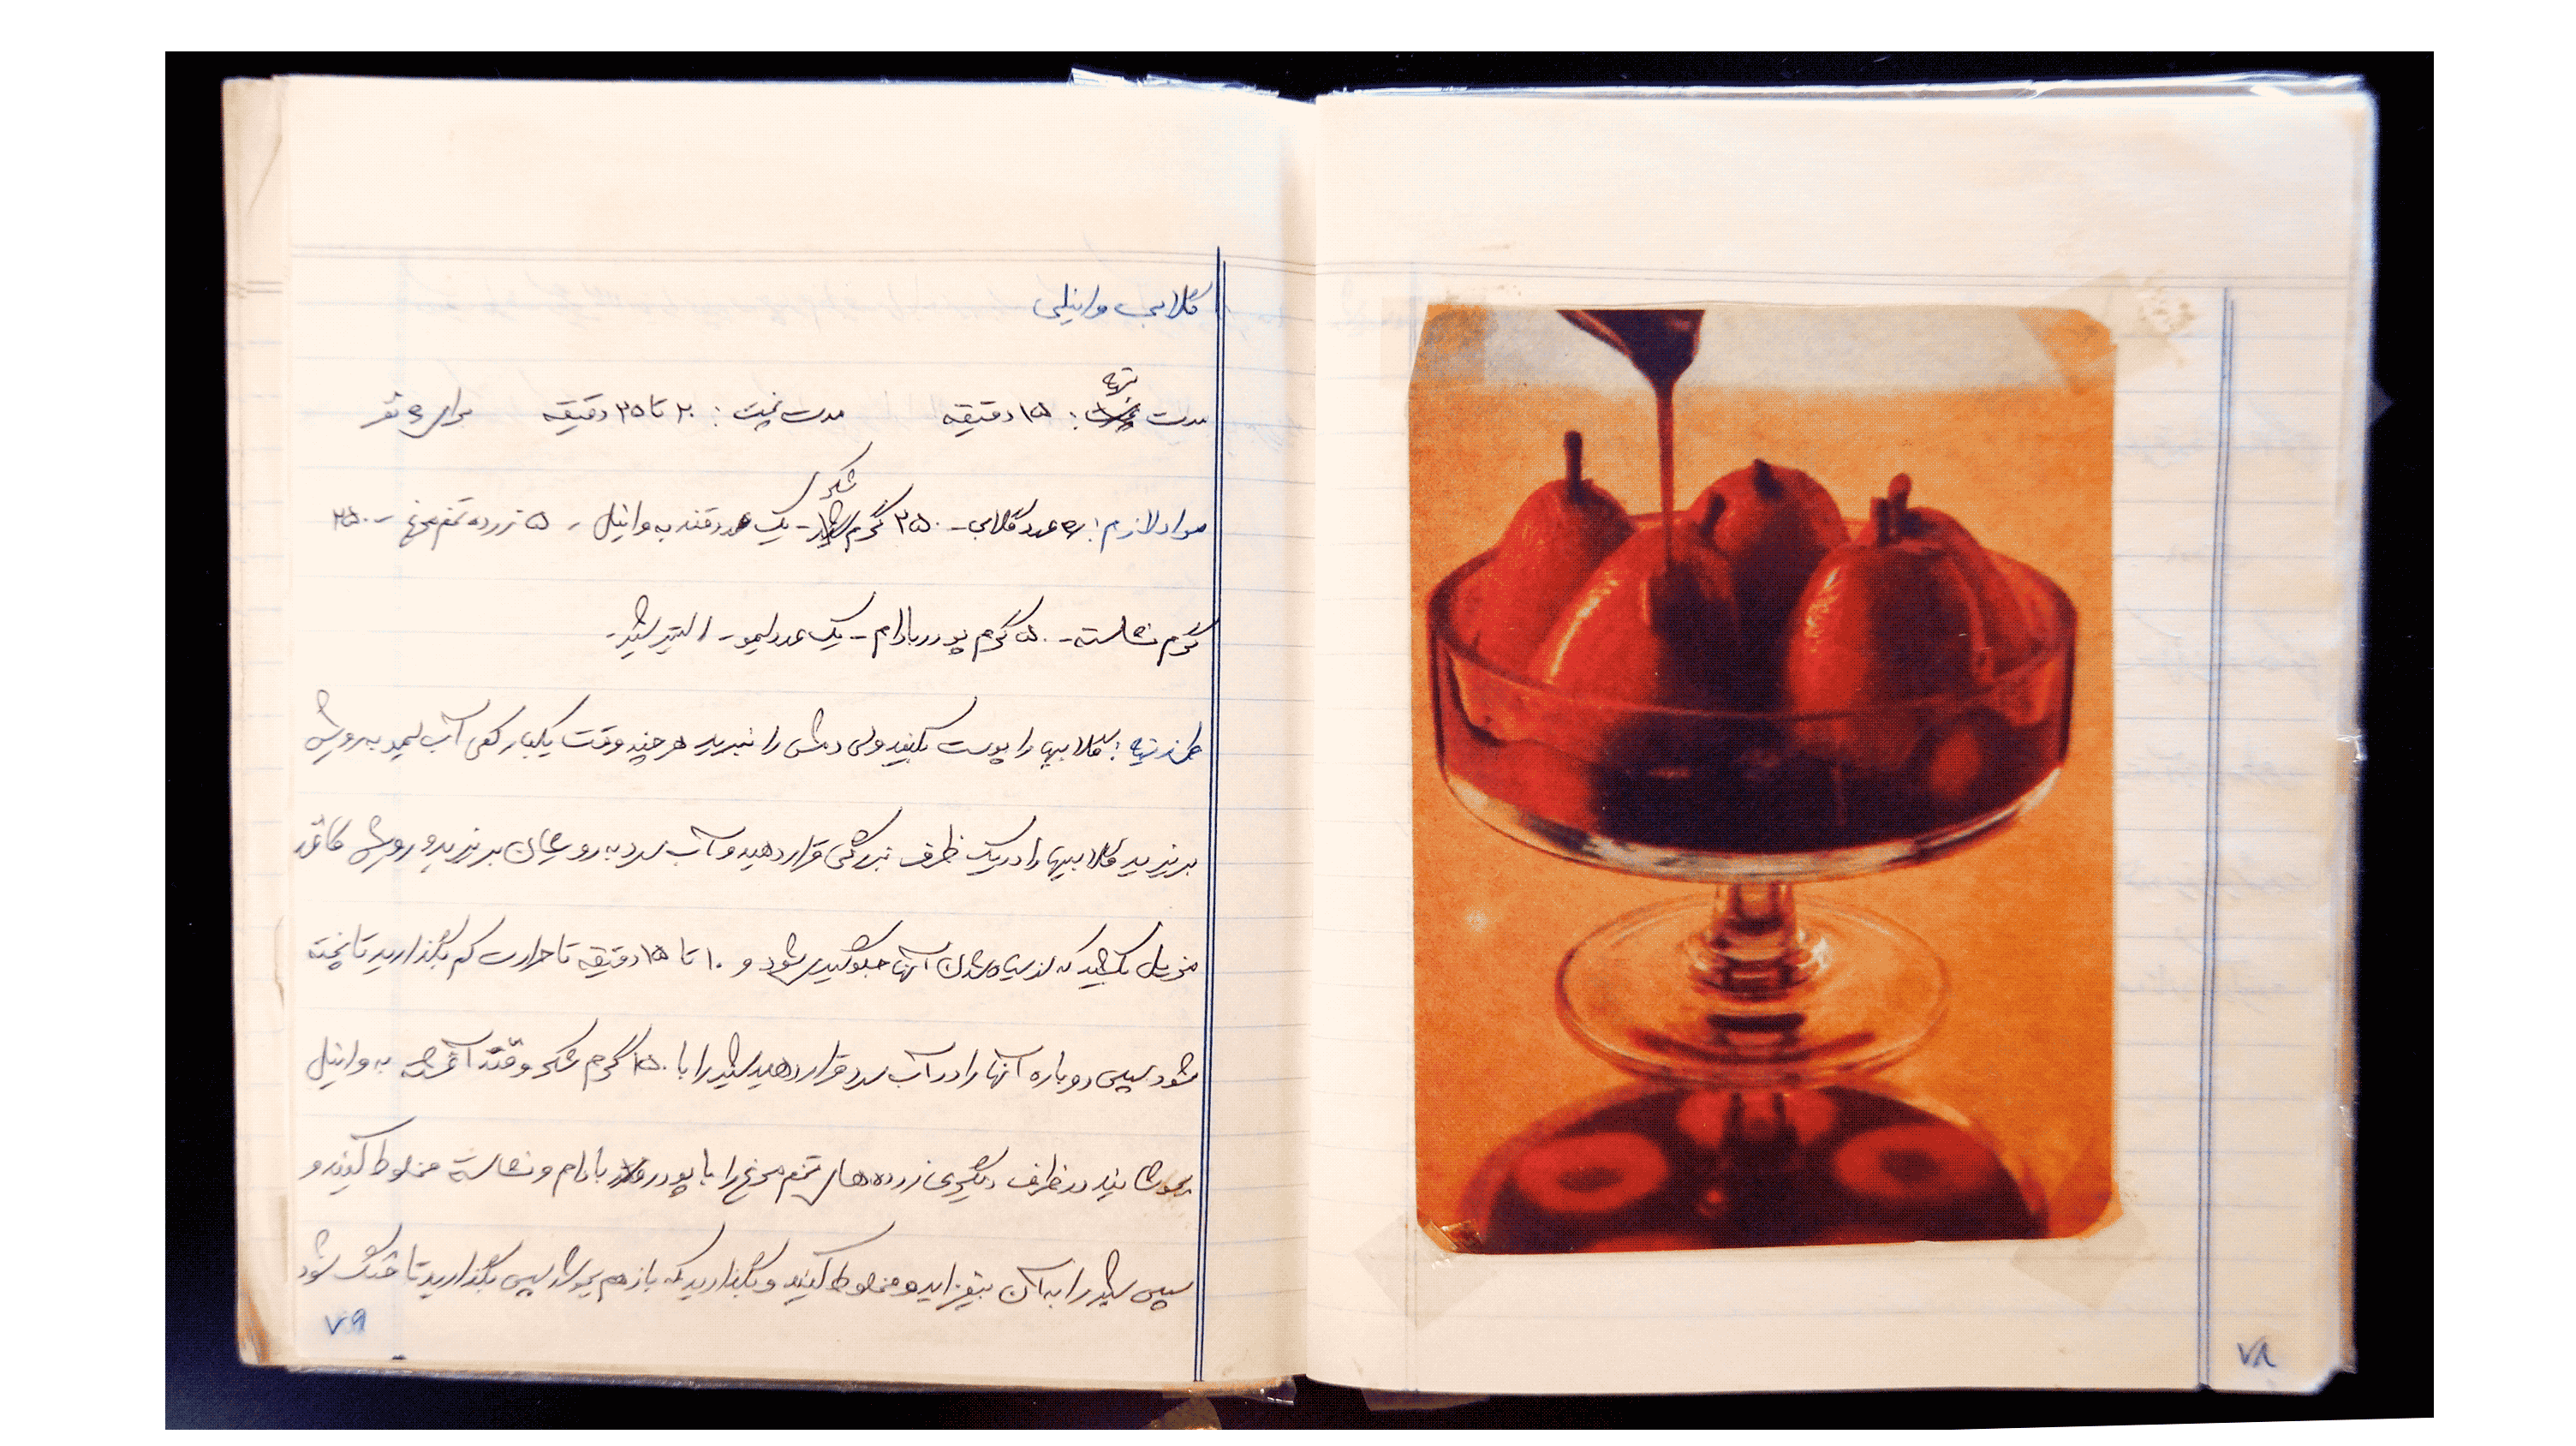 گلابی وانیلی
مدت تهیه: ۱۵ دقیقه مدت پخت: ۲۰ تا ۲۵ دقیقه برای ۶ نفر
مواد لازم: ۶ عدد گلابی - ۲۵۰ گرم شکر - یک عدد قند به وانیل - ۵ زرده تخم مرغ - ۲۵۰
گرم نشاسته - ۵۰ گرم پودر بادام - یک عدد لیمو - ۱ لیتر شیر -
طرز تهیه: گلابیها را پوست بکنید ولی دمش را نبرید هر چند وقت یکبار کمی آب لیمو به رویش
بریزید گلابیها را در یک ظرف بزرگی قرار دهید و آب سرد به روی آن بریزید و رویش کاغذ
بکشید که از سیاه شدن آنها جلوگیری شود و ۱۰ تا ۱۵ دقیقه تا حرارت کم بگذارید تا پخته
شود سپس دوباره آنها را در آب سرد قرار دهید شیر را با ۲۵۰ گرم شکر و قند آغشته به وانیل
بجوشانید در ظرف دیگری زرده های تخم مرغ را با پودر بادام و نشاسته مخلوط کنید و
سپس شیر را به آن بیفزایید و مخلوط کنید و بگذارید که باز هم بجوشد سپس بگذارید تا خنک شود
۷۹
۷۸